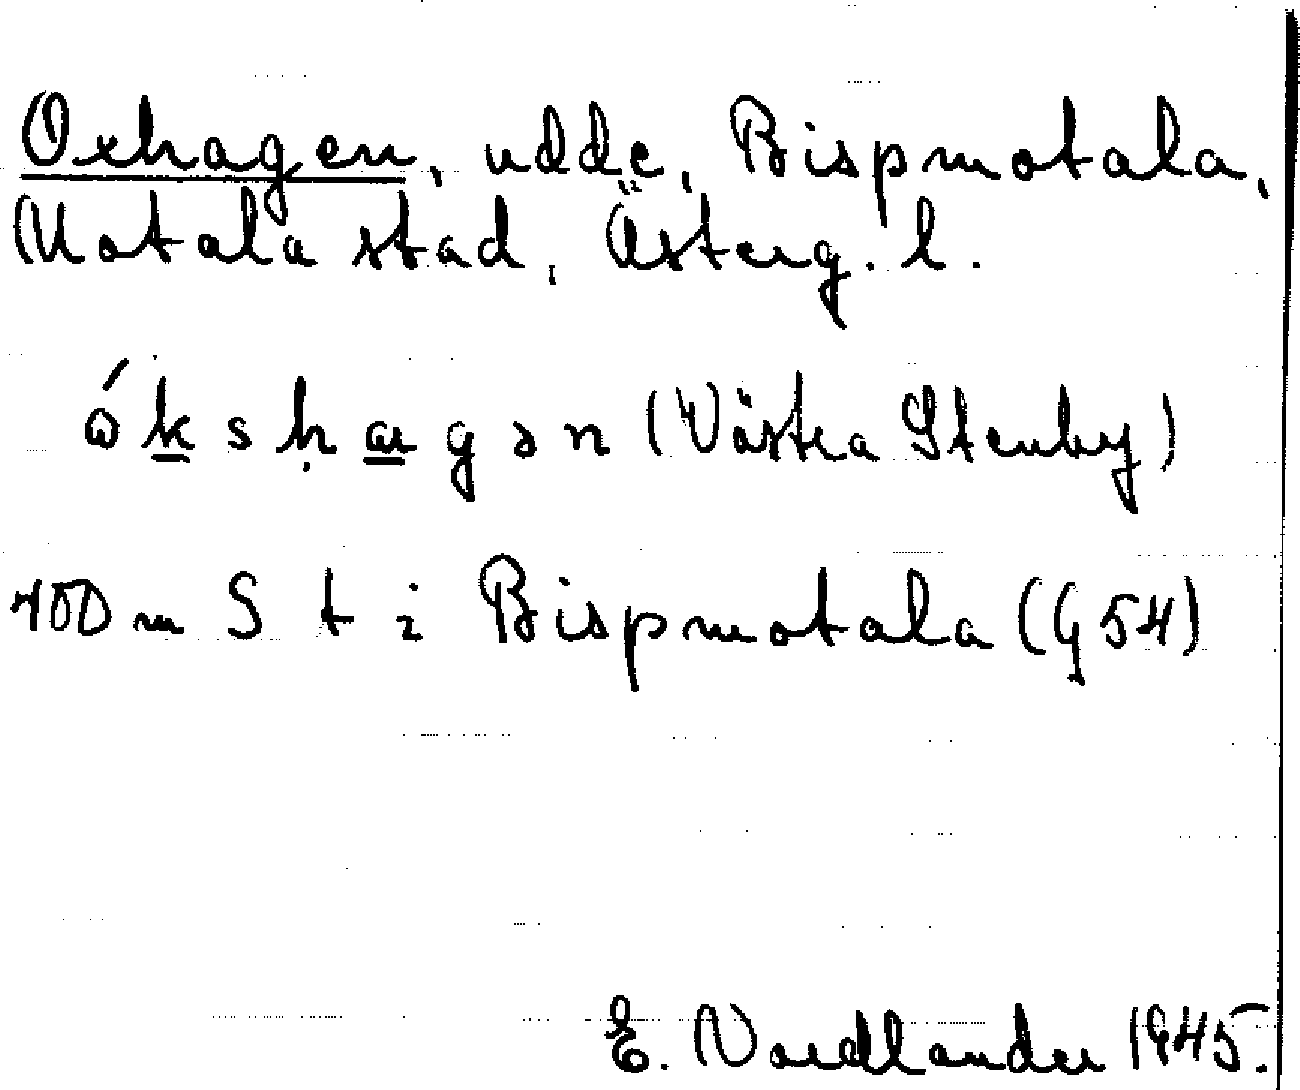 Oxhagen, udde, Bispmotala,
Motala stad, Österg. l.
ókshagən (Västra Stenby)
400 m S t i Bispmotala (G 54)
E. Nordlander 1945.